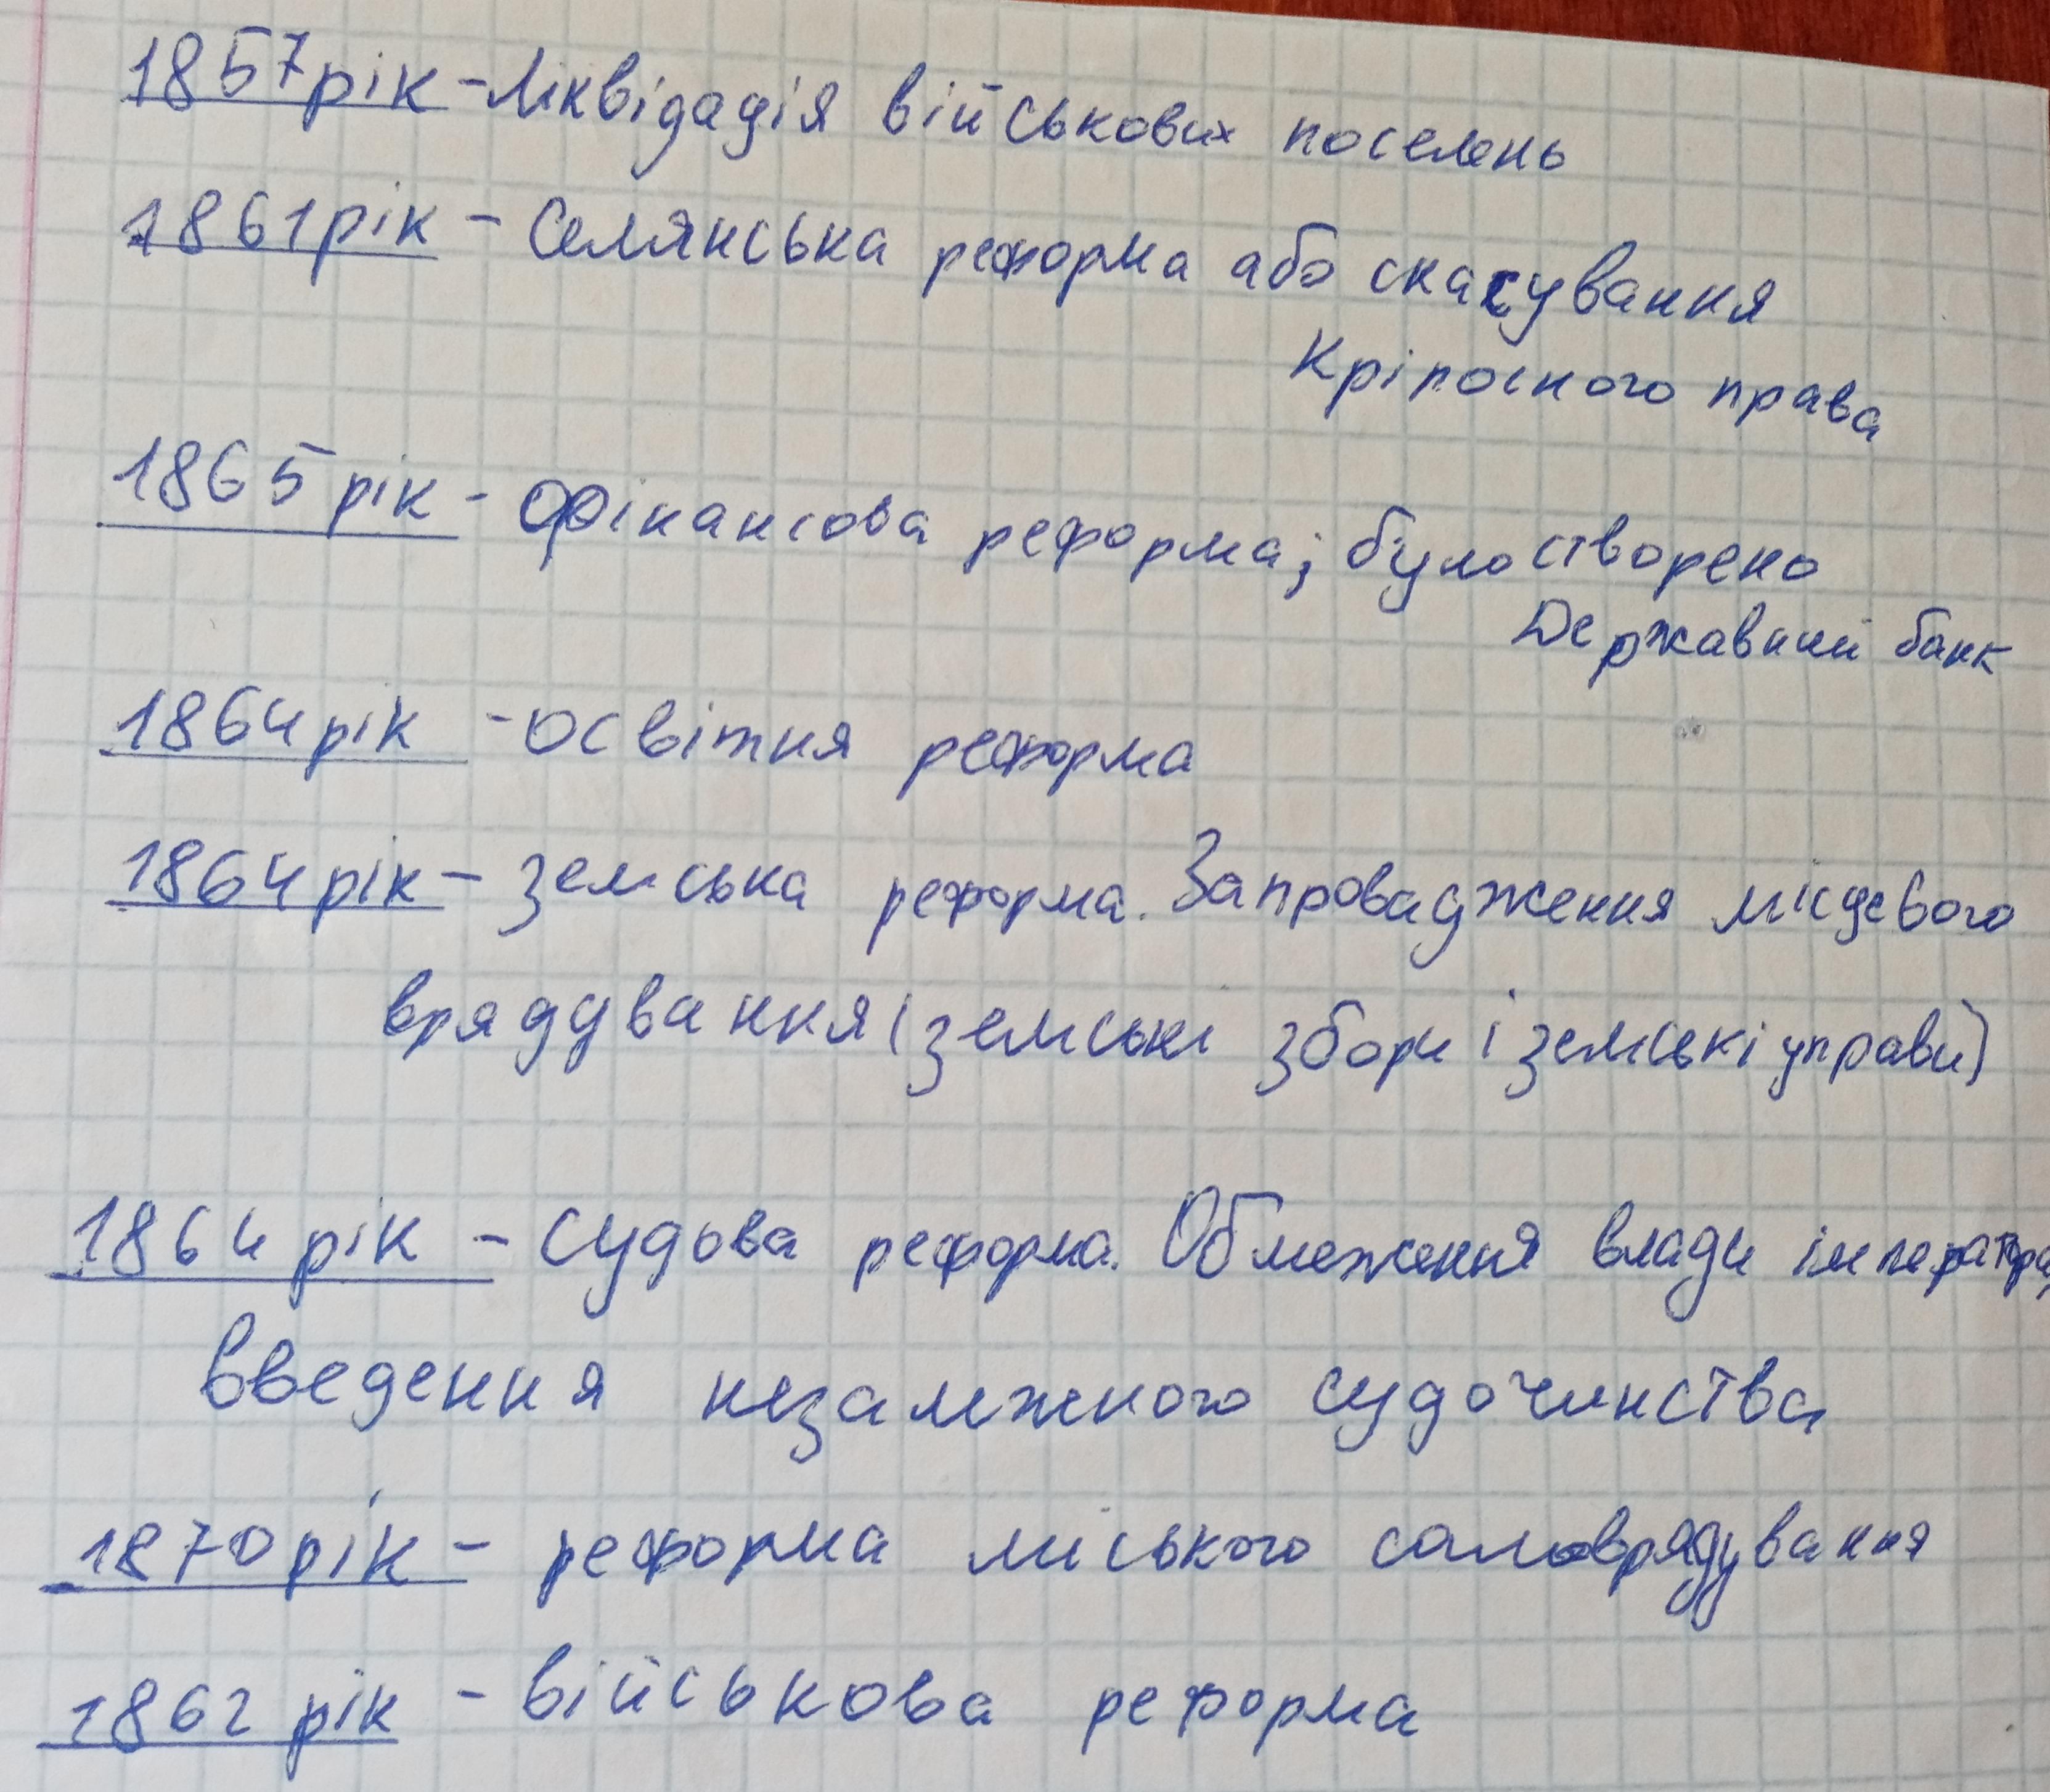 1857 рік - Ліквідація військових поселень
1861 рік - Селянська реформа або скасування
Кріпосного права
1865 рік - Фінансова реформа; було створено
Державний банк
1864 рік - освітня реформа
1864 рік - земська реформа. Запровадження місцевого
врядування (земські збори і земські управи)
1864 рік - судова реформа. Обмеження влади імператора,
введення незалежного судочинства
1870 рік - реформа міського самоврядування
1862 рік - військова реформа